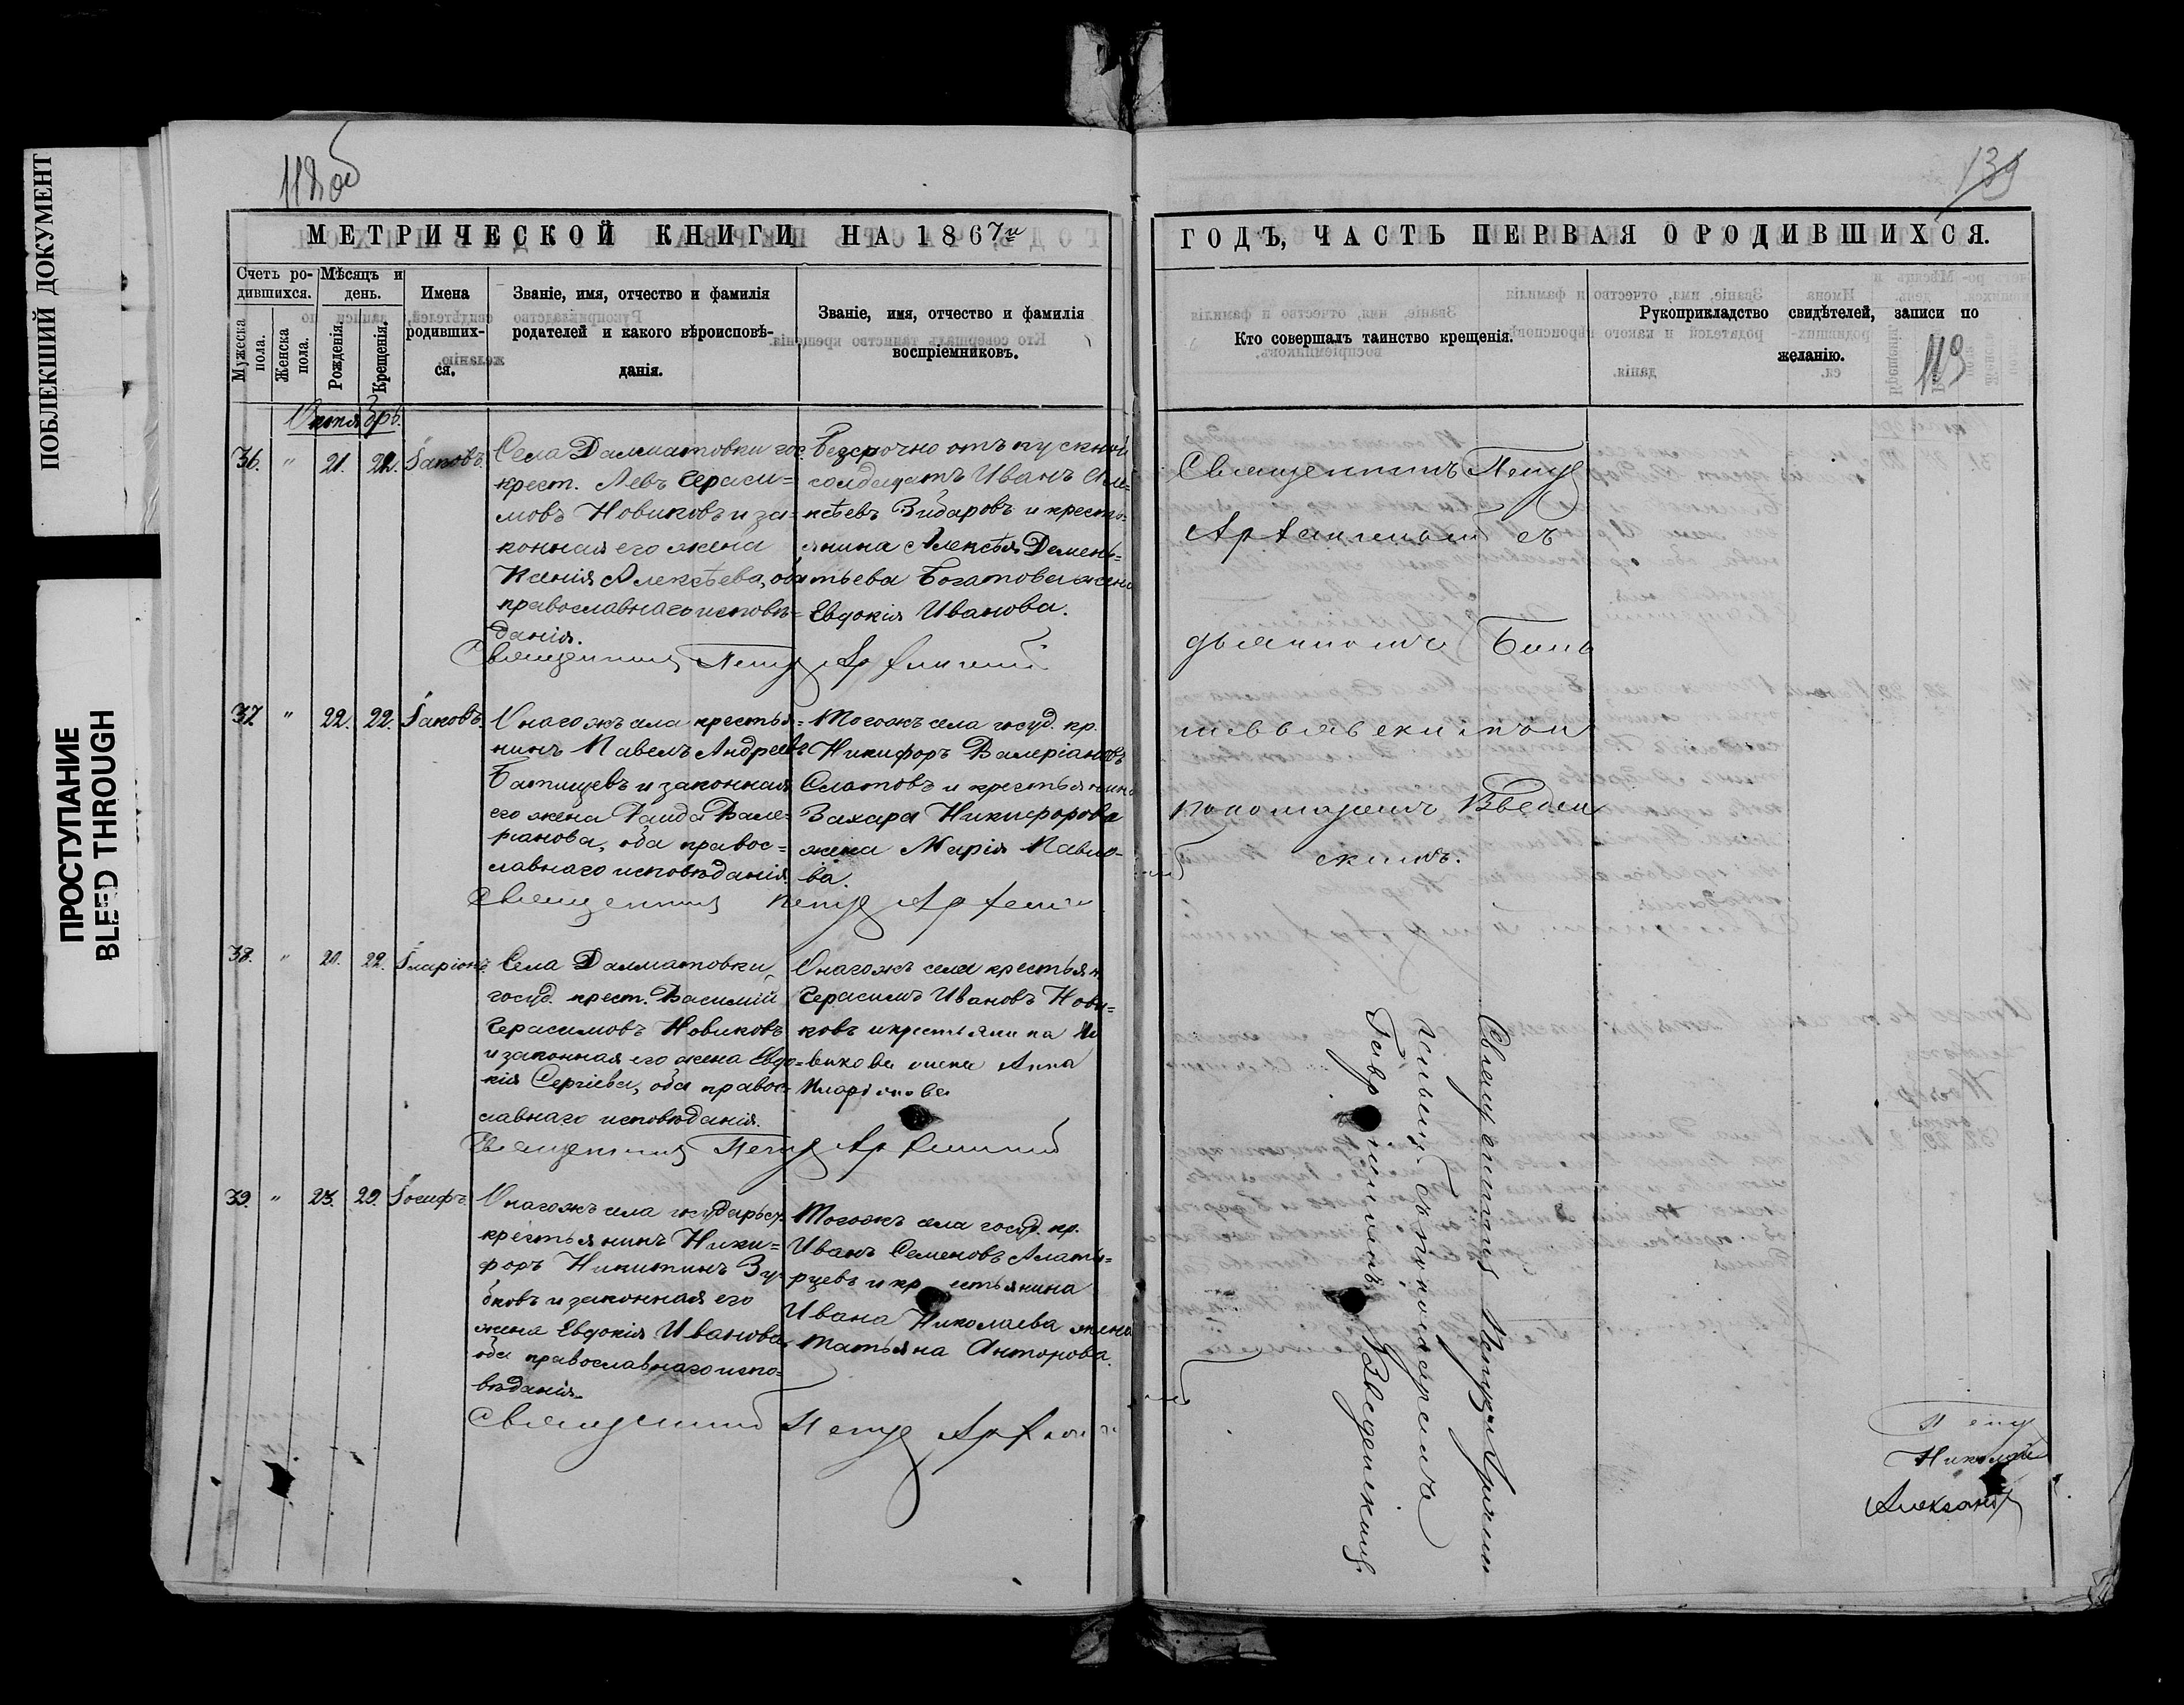 ПОБЛЕКШИЙ ДОКУМЕНТ
ПРОСТУПАНИЕ
BLEED THROUGH
118 об
МЕТРИЧЕСКОЙ КНИГИ НА 1867й
Счетъ ро-
дившихся.
Мужеска
пола.
Женска
пола.
Мѣсяцъ и
день.
Рожденія.
Крещенія.
Имена
родивших-
ся.
Званіе, имя, отчество и фамилія
родителей и какого вѣроисповѣ-
данія.
Званіе, имя, отчество и фамилія
воспріемниковъ.
Октябрь.
36. " 21. 22. Іаковъ.
Села Далматовки гос.
крест. Левъ Гераси=
мовъ Новиковъ и за-
конная его жена
Ксенія Алексѣева, оба
православнаго исповѣ-
данія.
Безсрочно отпускной
солдатъ Иванъ Але=
ксѣевъ Зибаровъ и кресть-
янина Алексѣя Демень-
тьева Богатова жена
Евдокія Иванова.
Священникъ Петръ
37. " 22. 22. Іаковъ.
Онагожъ села крестья=
нинъ Павелъ Андреевъ
Батищевъ и законная
его жена Раида Вале-
ріанова, оба правос=
славнаго исповѣданія.
Тогожъ села госуд. кр.
Никифоръ Валеріановъ
Слатовъ и крестьянина
Захара Никифорова
жена Марія Павло-
ва.
Священникъ Петръ
38. " 21. 22. Іларіонъ
Села Далматовки
госуд. крест. Василій
Герасимовъ Новиковъ
и законная его жена Евдо=
кія Сергіева, оба правос-
славнаго исповѣданія.
Онагожъ села крестьян.
Герасимъ Ивановъ Нови=
ковъ и крестьянина
жена Анна
Иларіонова
Священникъ Петръ
39. " 23. 29. Іосифъ.
Онагожъ села государст.
крестьянинъ Ники=
форъ Никитинъ Зу-
бковъ и законная его
жена Евдокія Иванова
оба православнаго испо-
вѣданія.
Тогожъ села госуд. кр.
Иванъ Семеновъ Алаты=
рцевъ и крестьянина
Ивана Николаева жена
Татьяна Антонова.
Священникъ Петръ
139
ГОДЪ, ЧАСТЬ ПЕРВАЯ О РОДИВШИХСЯ.
Кто совершалъ таинство крещенія.
Рукоприкладство свидѣтелей, записи по
желанію.
119
Священникъ Петръ
съ
пономаремъ Введен
скимъ.
Священникъ Петръ
съ пономаремъ
Введенскимъ.
Петръ
Николай
Александръ